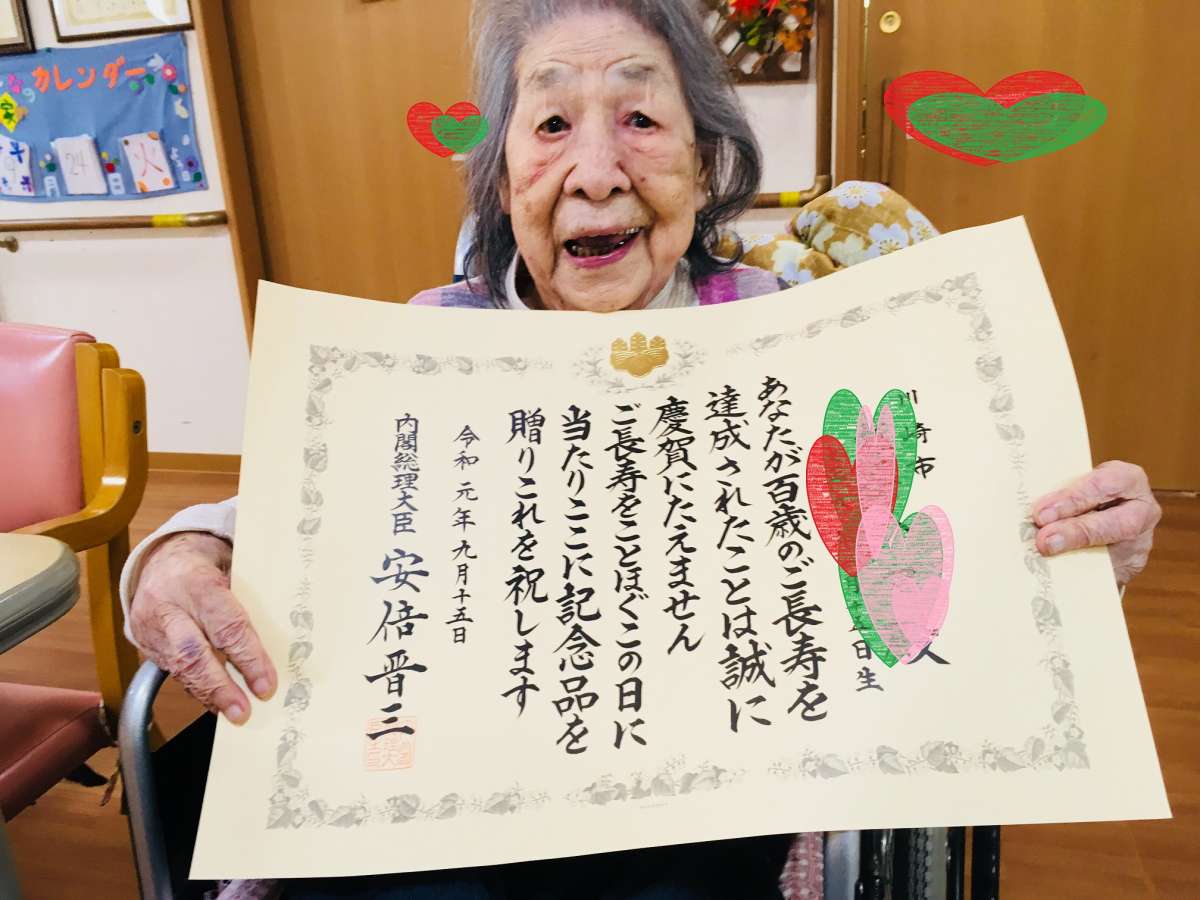 カレンダー
9
24
火
川崎市
日生
あなたが百歳のご長寿を
達成されたことは誠に
慶賀にたえません
ご長寿をことほぐこの日に
当たりここに記念品を
贈りこれを祝します
令和元年九月十五日
内閣総理大臣 安倍晋三